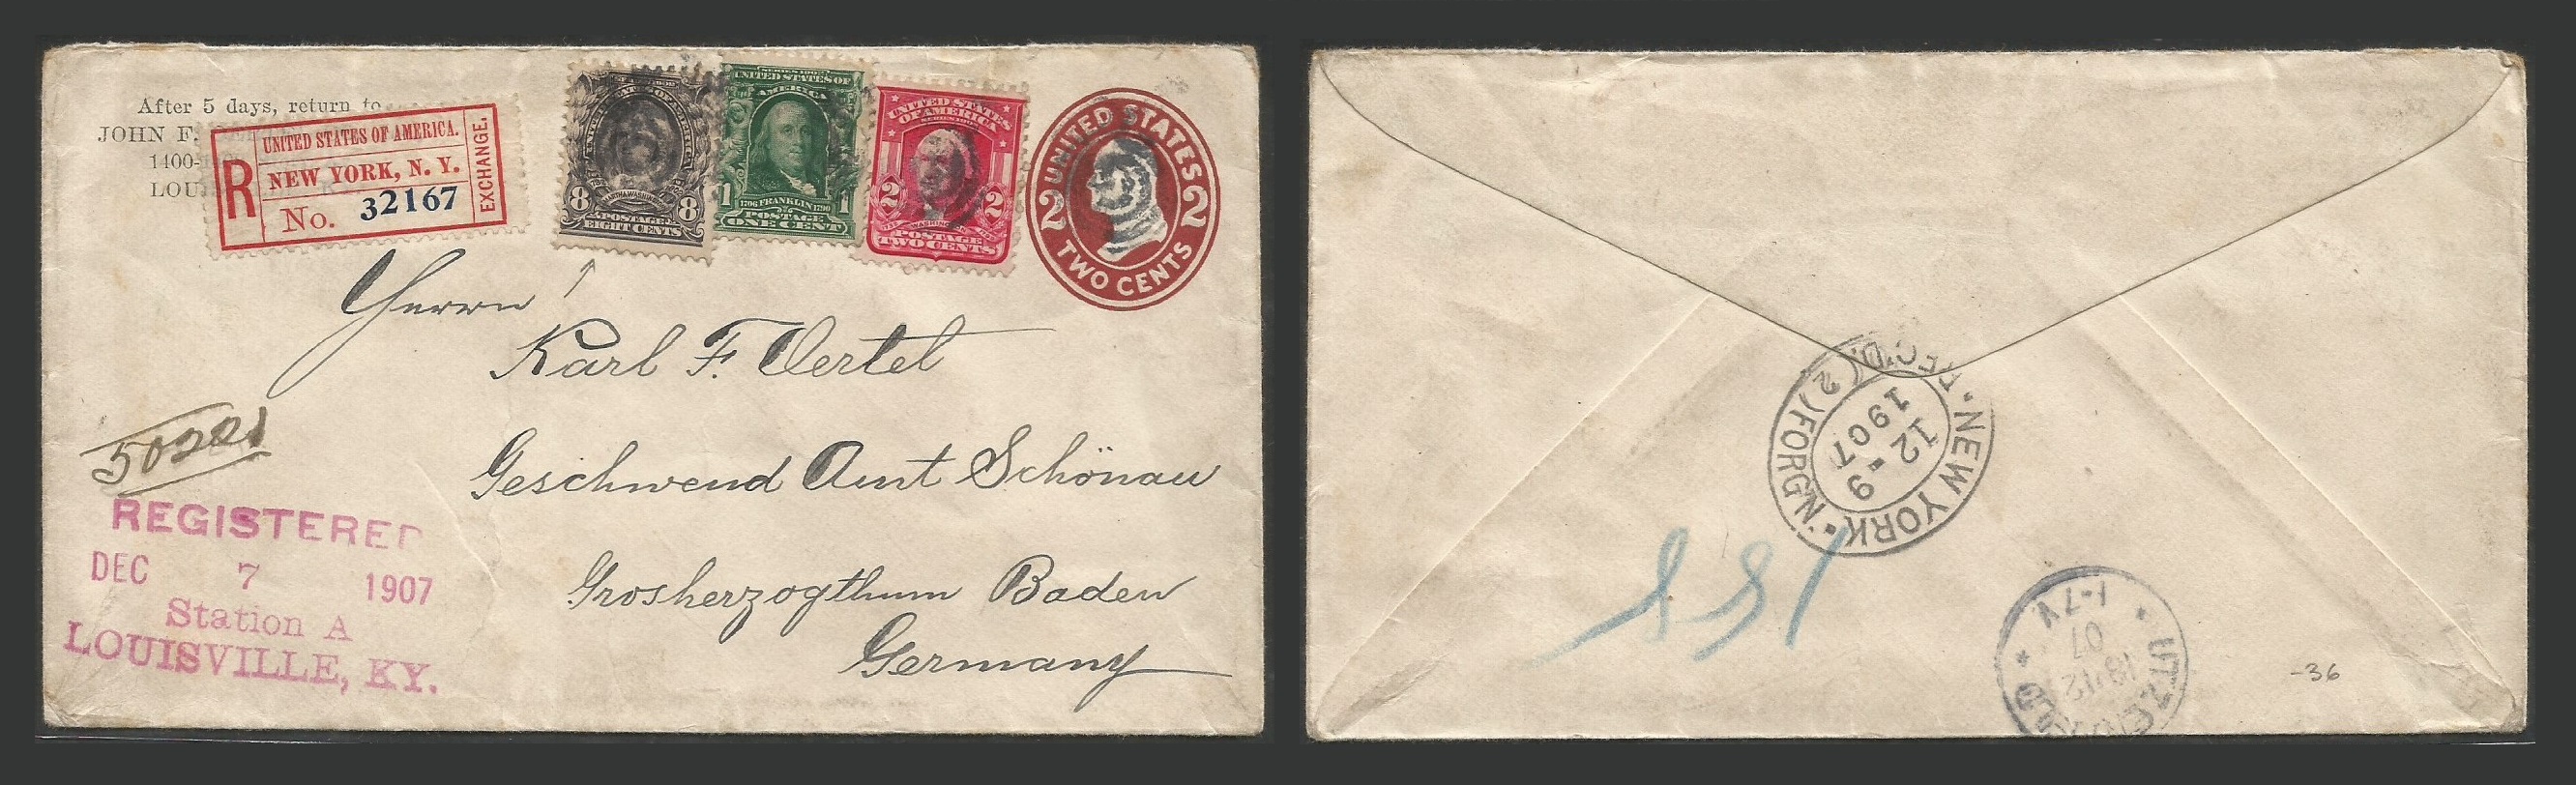 After 5 days, return to
JOHN F.
1400-
LOU
R
UNITED STATES OF AMERICA.
NEW YORK, N. Y.
No. 32167
EXCHANGE.
8 8
POSTAGE
EIGHT CENTS
SERIES 1902
UNITED STATES OF
AMERICA
1 1
1706 FRANKLIN 1790
POSTAGE
ONE CENT
UNITED STATES
OF AMERICA
2 2
POSTAGE
TWO CENTS
UNITED STATES
2 2
TWO CENTS
Herrn
Karl F. Oertel
Geschwend Amt Schönau
Grosherzogthum Baden
Germany
REGISTERED
DEC 7 1907
Station A
LOUISVILLE, KY.
NEW YORK. N.Y. REC'D.
(2) FORGN.
12-9
1907
1-7V
07
-36